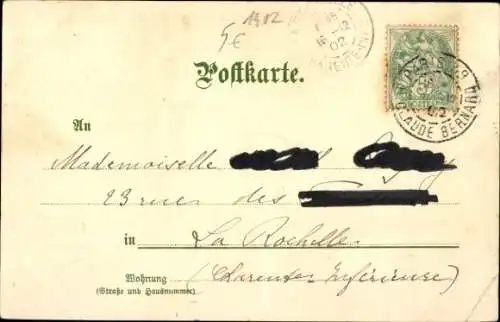 1902
5€
16-12
02
Postkarte.
PARIS
CLAUDE BERNARD
An
Mademoiselle
23 rue des
in La Rochelle
Wohnung (Charente Inférieure)
(Straße und Hausnummer)